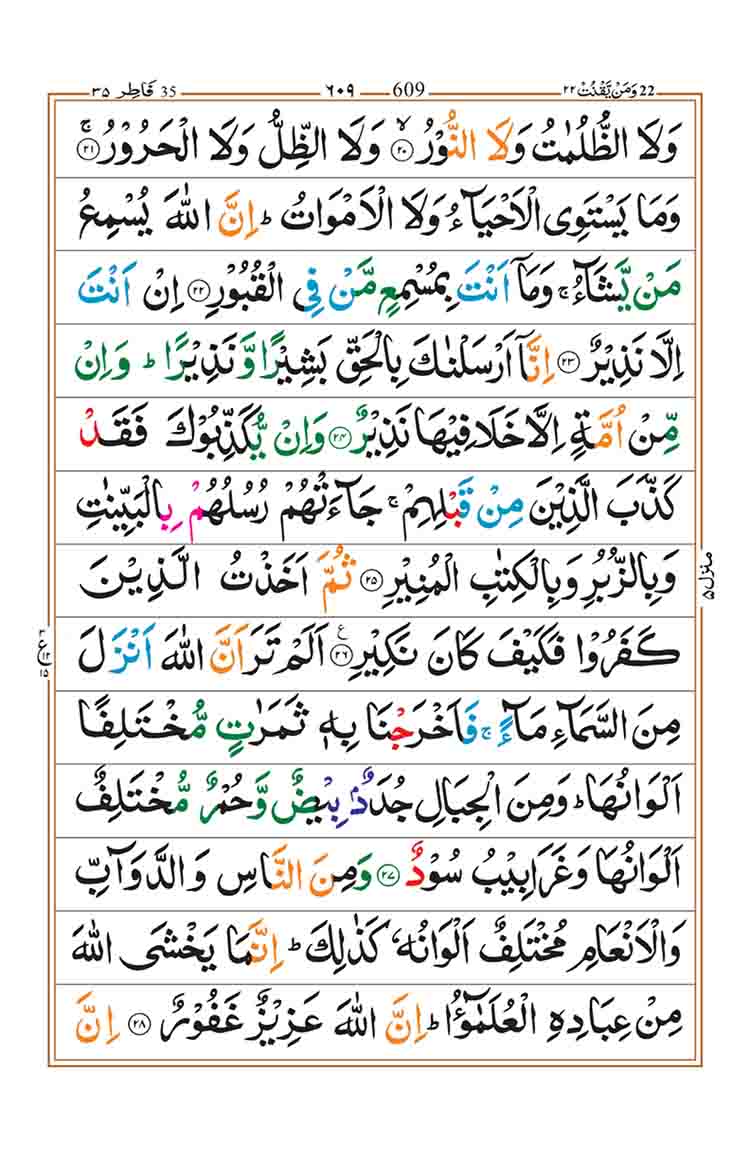 22 وَمَنْ يَّقْنُتْ ٢٢ 609 ٦٠٩ 35 فَاطِر ٣٥
وَلَا الظُّلُمٰتُ وَلَا النُّوْرُ ۙ﴿۲۰﴾ وَلَا الظِّلُّ وَلَا الْحَرُوْرُ ۚ﴿۲۱﴾
وَمَا يَسْتَوِى الْاَحْيَآءُ وَلَا الْاَمْوَاتُ ؕ اِنَّ اللّٰهَ يُسْمِعُ
مَنْ يَّشَآءُ ۚ وَمَاۤ اَنْتَ بِمُسْمِعٍ مَّنْ فِى الْقُبُوْرِ ﴿۲۲﴾ اِنْ اَنْتَ
اِلَّا نَذِيْرٌ ﴿۲۳﴾ اِنَّاۤ اَرْسَلْنٰكَ بِالْحَقِّ بَشِيْرًا وَّنَذِيْرًا ؕ وَاِنْ
مِّنْ اُمَّةٍ اِلَّا خَلَا فِيْهَا نَذِيْرٌ ﴿۲۴﴾ وَاِنْ يُّكَذِّبُوْكَ فَقَدْ
كَذَّبَ الَّذِيْنَ مِنْ قَبْلِهِمْ ۚ جَآءَتْهُمْ رُسُلُهُمْ بِالْبَيِّنٰتِ
وَبِالزُّبُرِ وَبِالْكِتٰبِ الْمُنِيْرِ ﴿۲۵﴾ ثُمَّ اَخَذْتُ الَّذِيْنَ
كَفَرُوْا فَكَيْفَ كَانَ نَكِيْرِ ﴿۲۶﴾ ع اَلَمْ تَرَ اَنَّ اللّٰهَ اَنْزَلَ
مِنَ السَّمَآءِ مَآءً ۚ فَاَخْرَجْنَا بِهٖ ثَمَرٰتٍ مُّخْتَلِفًا
اَلْوَانُهَا ؕ وَمِنَ الْجِبَالِ جُدَدٌۢ بِيْضٌ وَّحُمْرٌ مُّخْتَلِفٌ
اَلْوَانُهَا وَغَرَابِيْبُ سُوْدٌ ﴿۲۷﴾ وَمِنَ النَّاسِ وَالدَّوَآبِّ
وَالْاَنْعَامِ مُخْتَلِفٌ اَلْوَانُهٗ كَذٰلِكَ ؕ اِنَّمَا يَخْشَى اللّٰهَ
مِنْ عِبَادِهِ الْعُلَمٰٓؤُا ؕ اِنَّ اللّٰهَ عَزِيْزٌ غَفُوْرٌ ﴿۲۸﴾ اِنَّ
منزل ۵